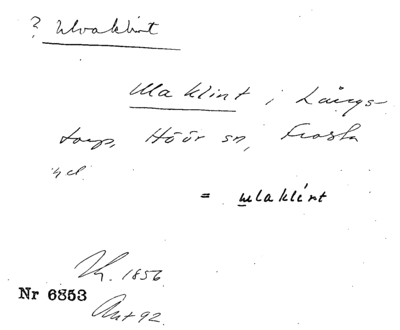 ? Ulvaklint
Ula klint i Långs-
torp, Höör sn, Frosta
hd.
= ulaklint
Kr. 1856.
Nr 6853
Ant 92.